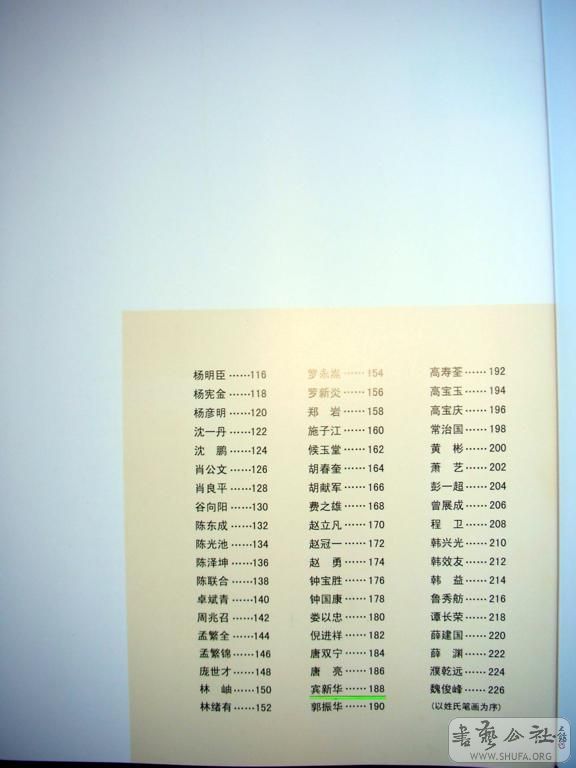 杨明臣……116
杨宪金……118
杨彦明……120
沈一丹……122
沈　鹏……124
肖公文……126
肖良平……128
谷向阳……130
陈东成……132
陈光池……134
陈泽坤……136
陈联合……138
卓斌青……140
周兆召……142
孟繁全……144
孟繁锦……146
庞世才……148
林　岫……150
林绪有……152
罗永嵩……154
罗新炎……156
郑　岩……158
施子江……160
候玉堂……162
胡春奎……164
胡献军……166
费之雄……168
赵立凡……170
赵冠一……172
赵　勇……174
钟宝胜……176
钟国康……178
娄以忠……180
倪进祥……182
唐双宁……184
唐　亮……186
宾新华……188
郭振华……190
高寿荃……192
高宝玉……194
高宝庆……196
常治国……198
黄　彬……200
萧　艺……202
彭一超……204
曾展成……206
程　卫……208
韩兴光……210
韩效友……212
韩　益……214
鲁秀舫……216
谭长荣……218
薛建国……220
薛　渊……222
濮乾远……224
魏俊峰……226
(以姓氏笔画为序)
书艺公社
WWW.SHUFA.ORG